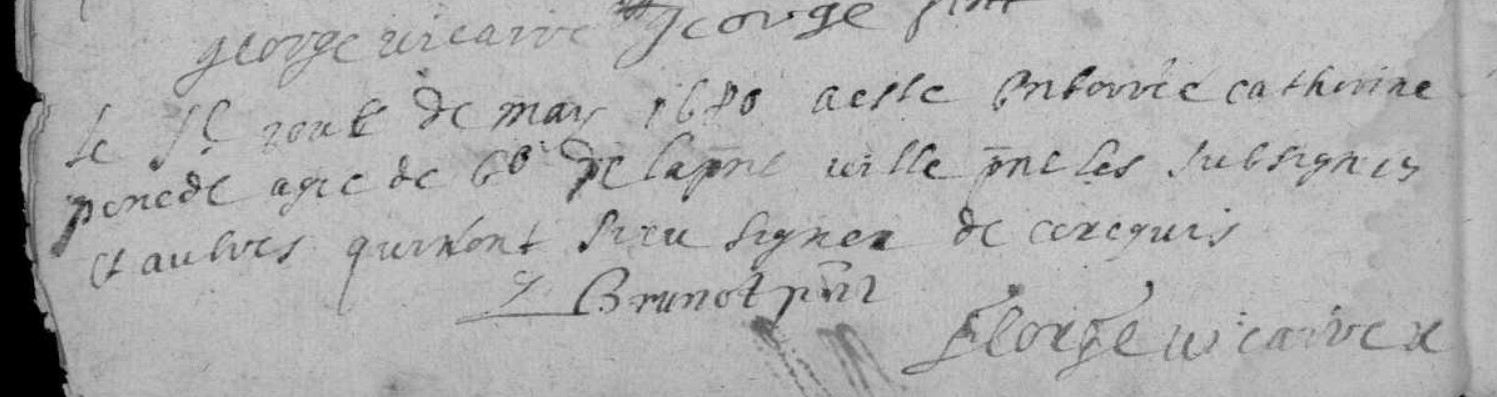 george vicaire george pnt
le d.r aout de may 1680 a este enterrée catherine
penede agee de 60 de la pnt ville pnt les subsignes
et aultres qui n'ont sceu signer de ce requis
Brunot pnt
George vicaire